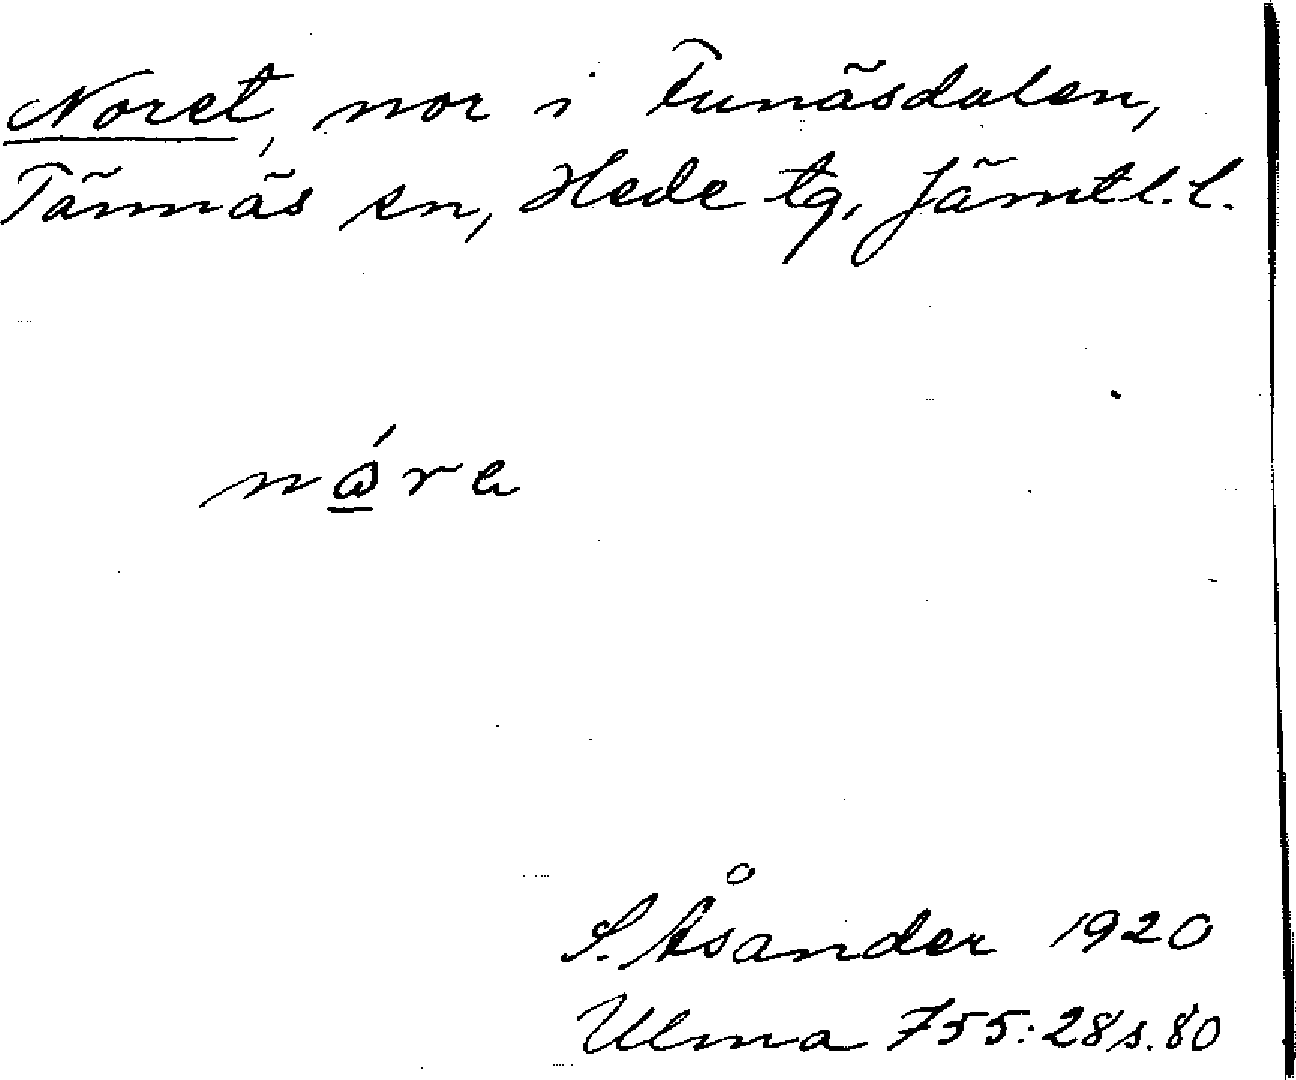 Noret, nor i Funäsdalen,
Tännäs sn, Hede tg, Jämtl.l.
nǻ̱re
S. Åsander 1920
Ulma 755:28 s.80